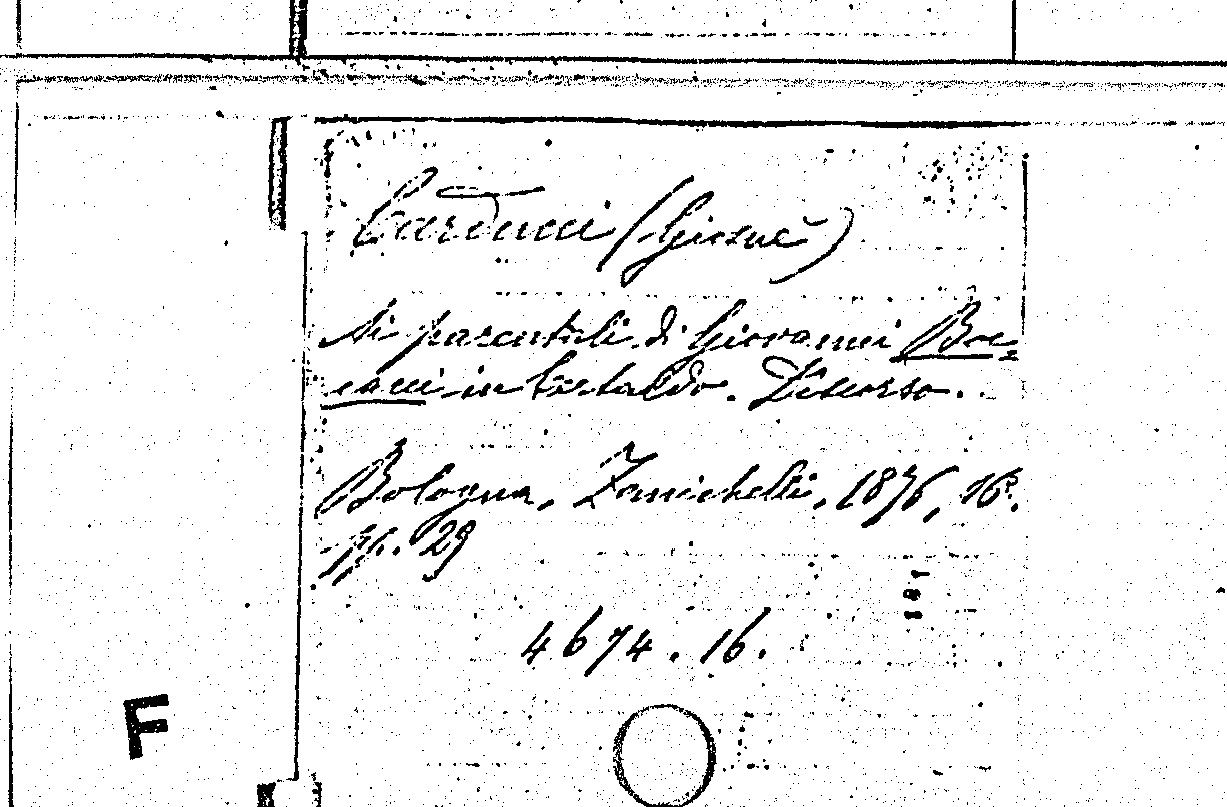 Carducci (Giosuè)
Ai parentali di Giovanni Boc=
cacci in Certaldo. Discorso.
Bologna, Zanichelli, 1876, 16º.
pp. 29
181
4674.16.
F